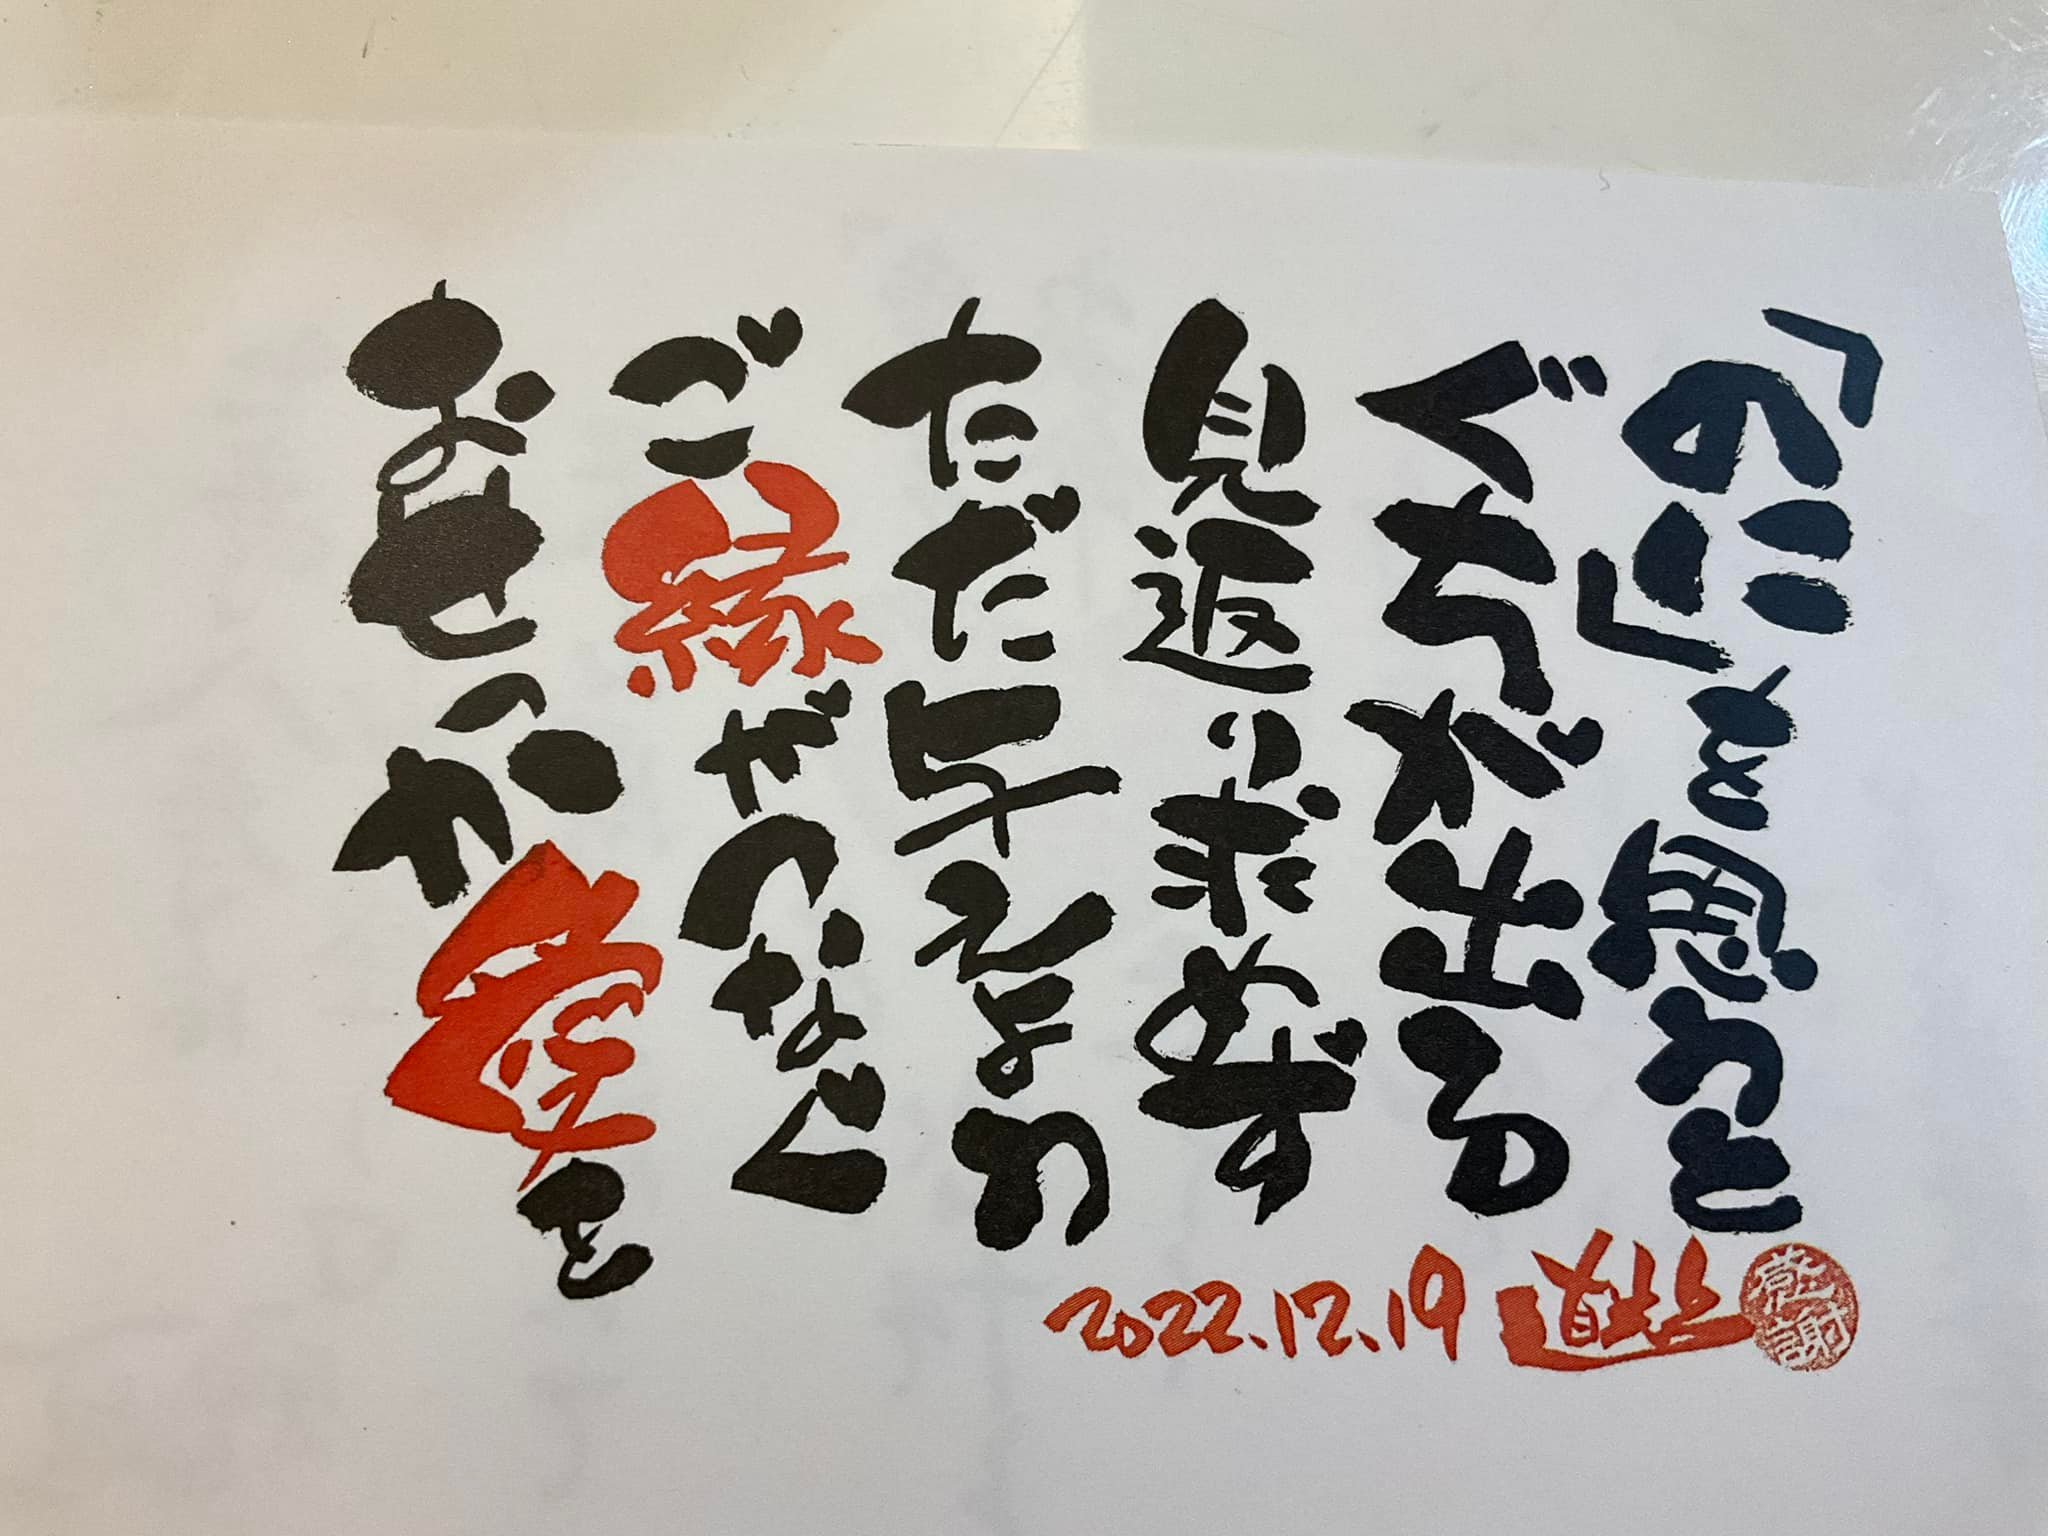 「のに」と思うと
ぐちが出る
見返り求めず
ただ与えよう
ご縁がつなぐ
おせっか愛を
2022.12.19
感謝